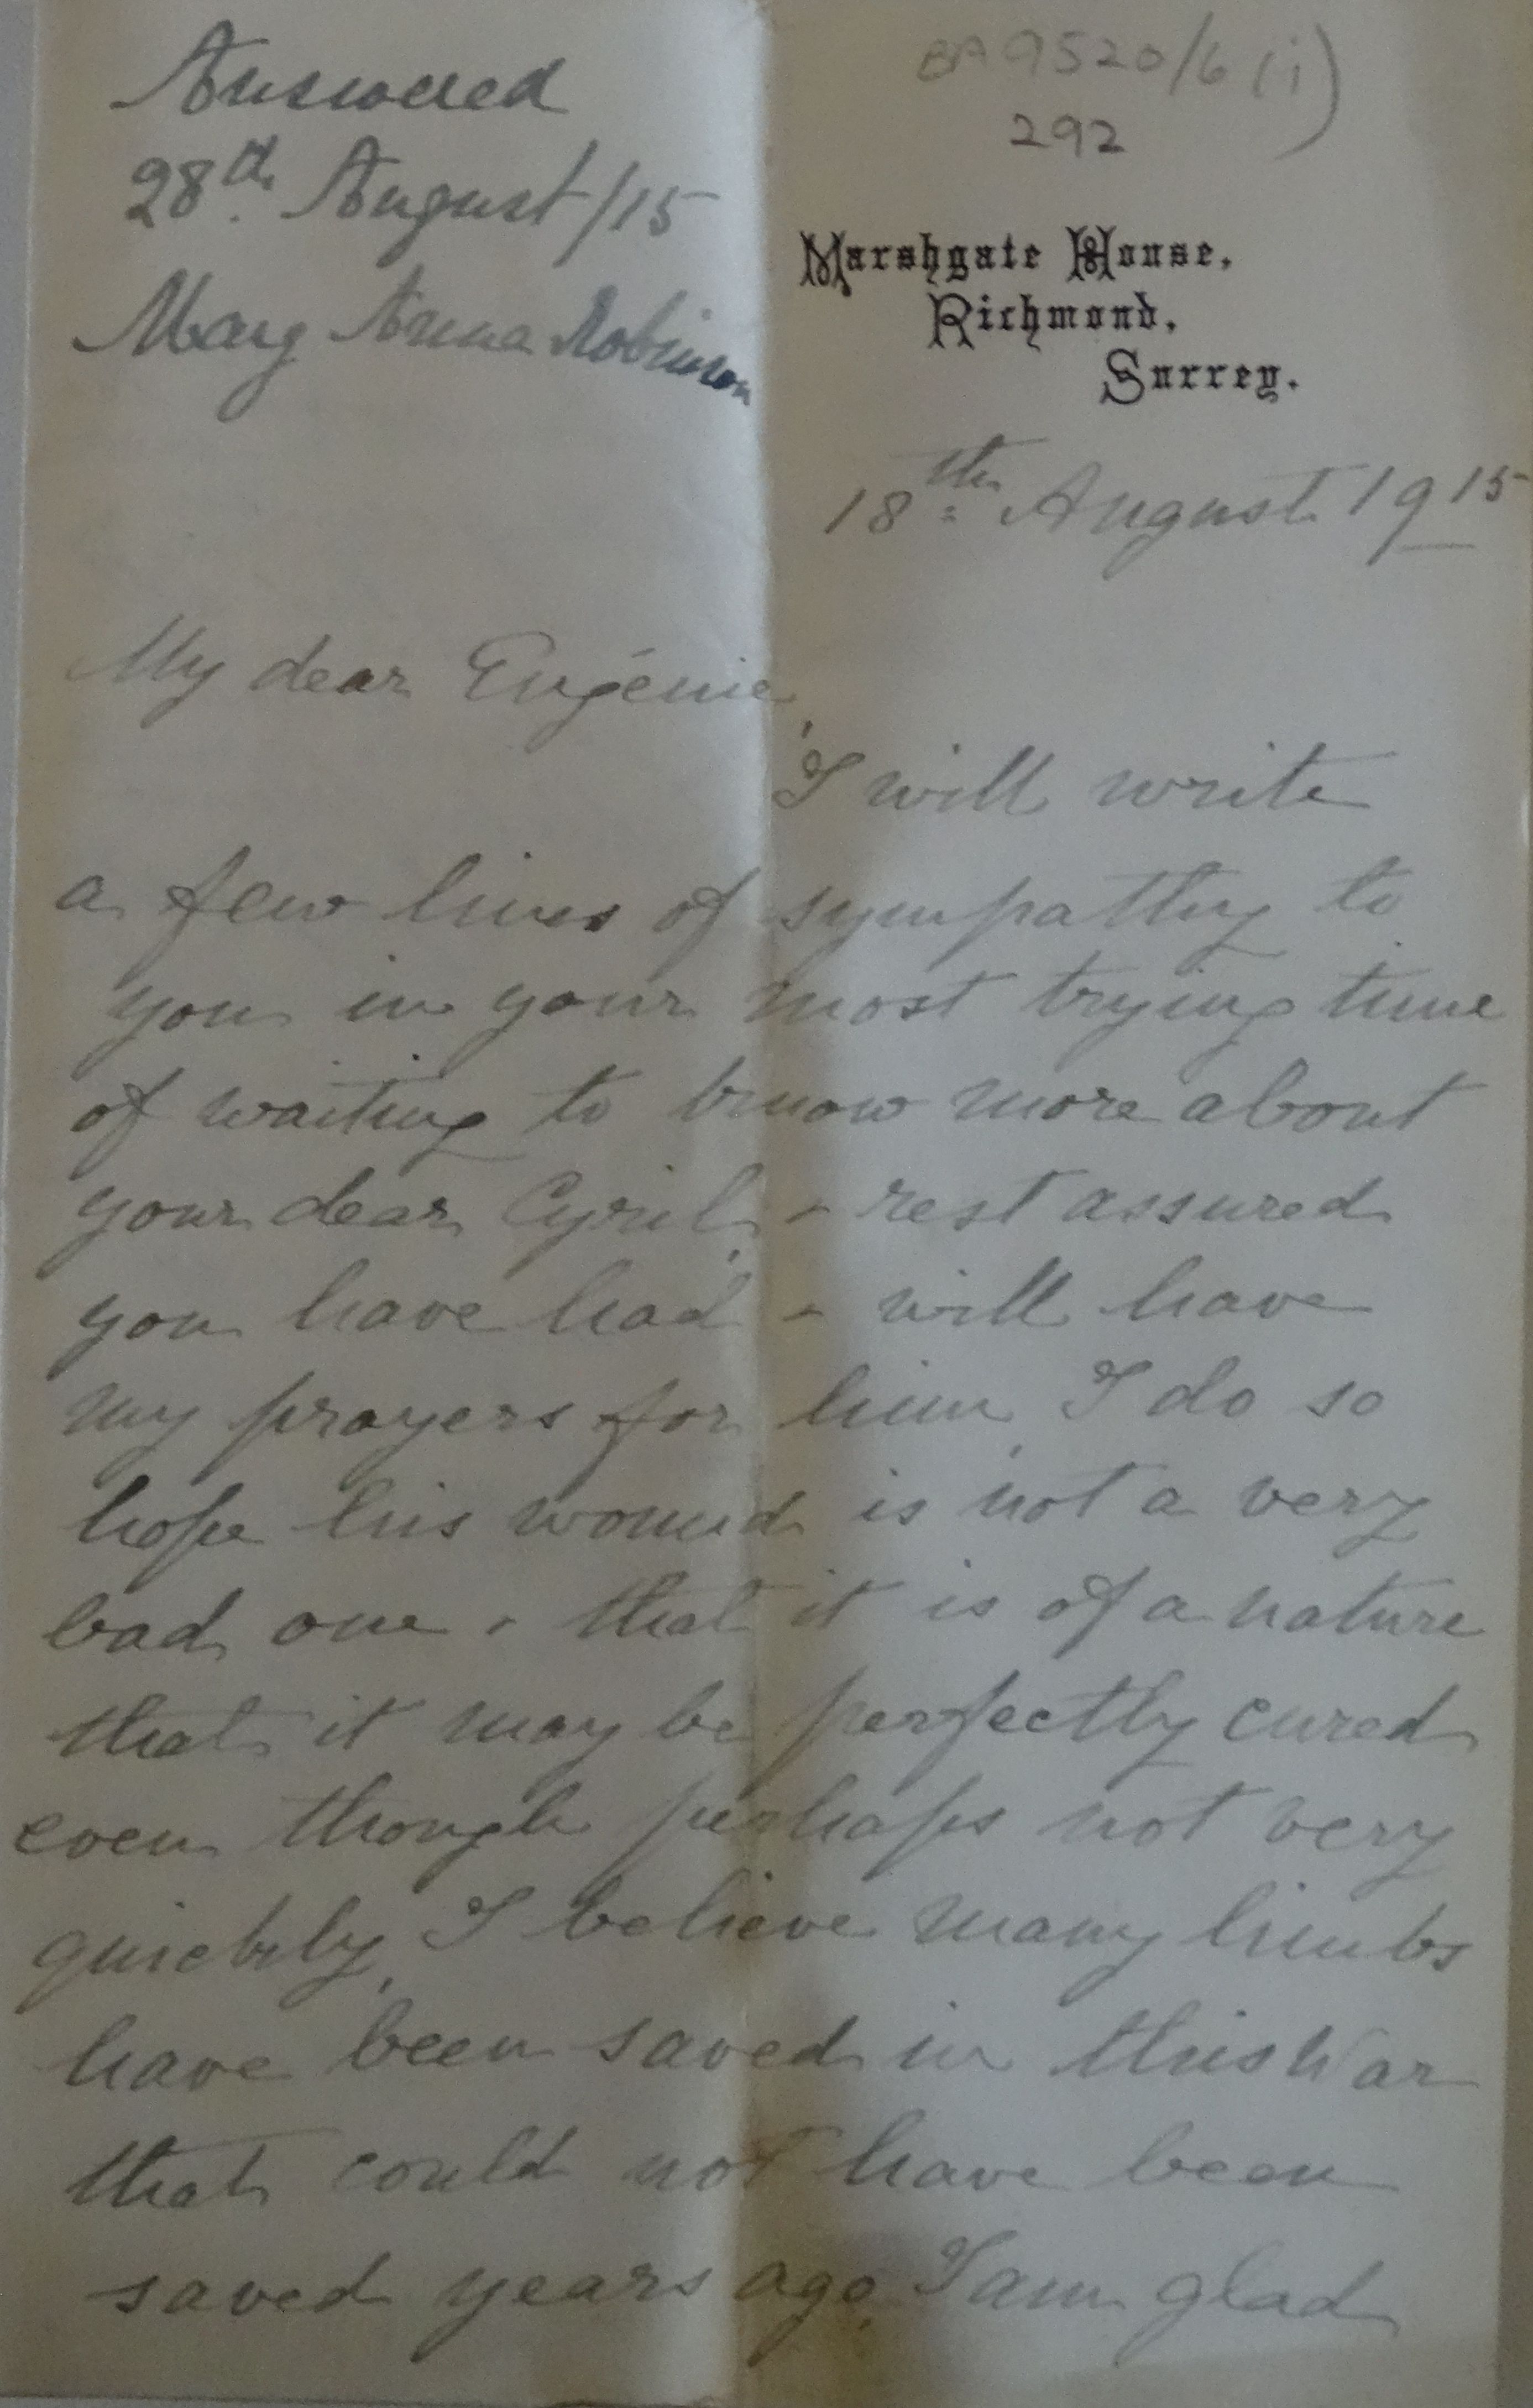 Answered
28th August/15
Mary Anna Robinson
BA 9520/6 (i)
292
Marshgate House,
Richmond,
Surrey.
18th August 1915
My dear Eugénie,
I will write
a few lines of sympathy to
you in your most trying time
of waiting to know more about
your dear Cyril, - rest assured
you have had - will have
my prayers for him, I do so
hope his wound is not a very
bad one - that it is of a nature
that it may be perfectly cured
even though perhaps not very
quickly, I believe many limbs
have been saved in this War
that could not have been
saved years ago. I am glad